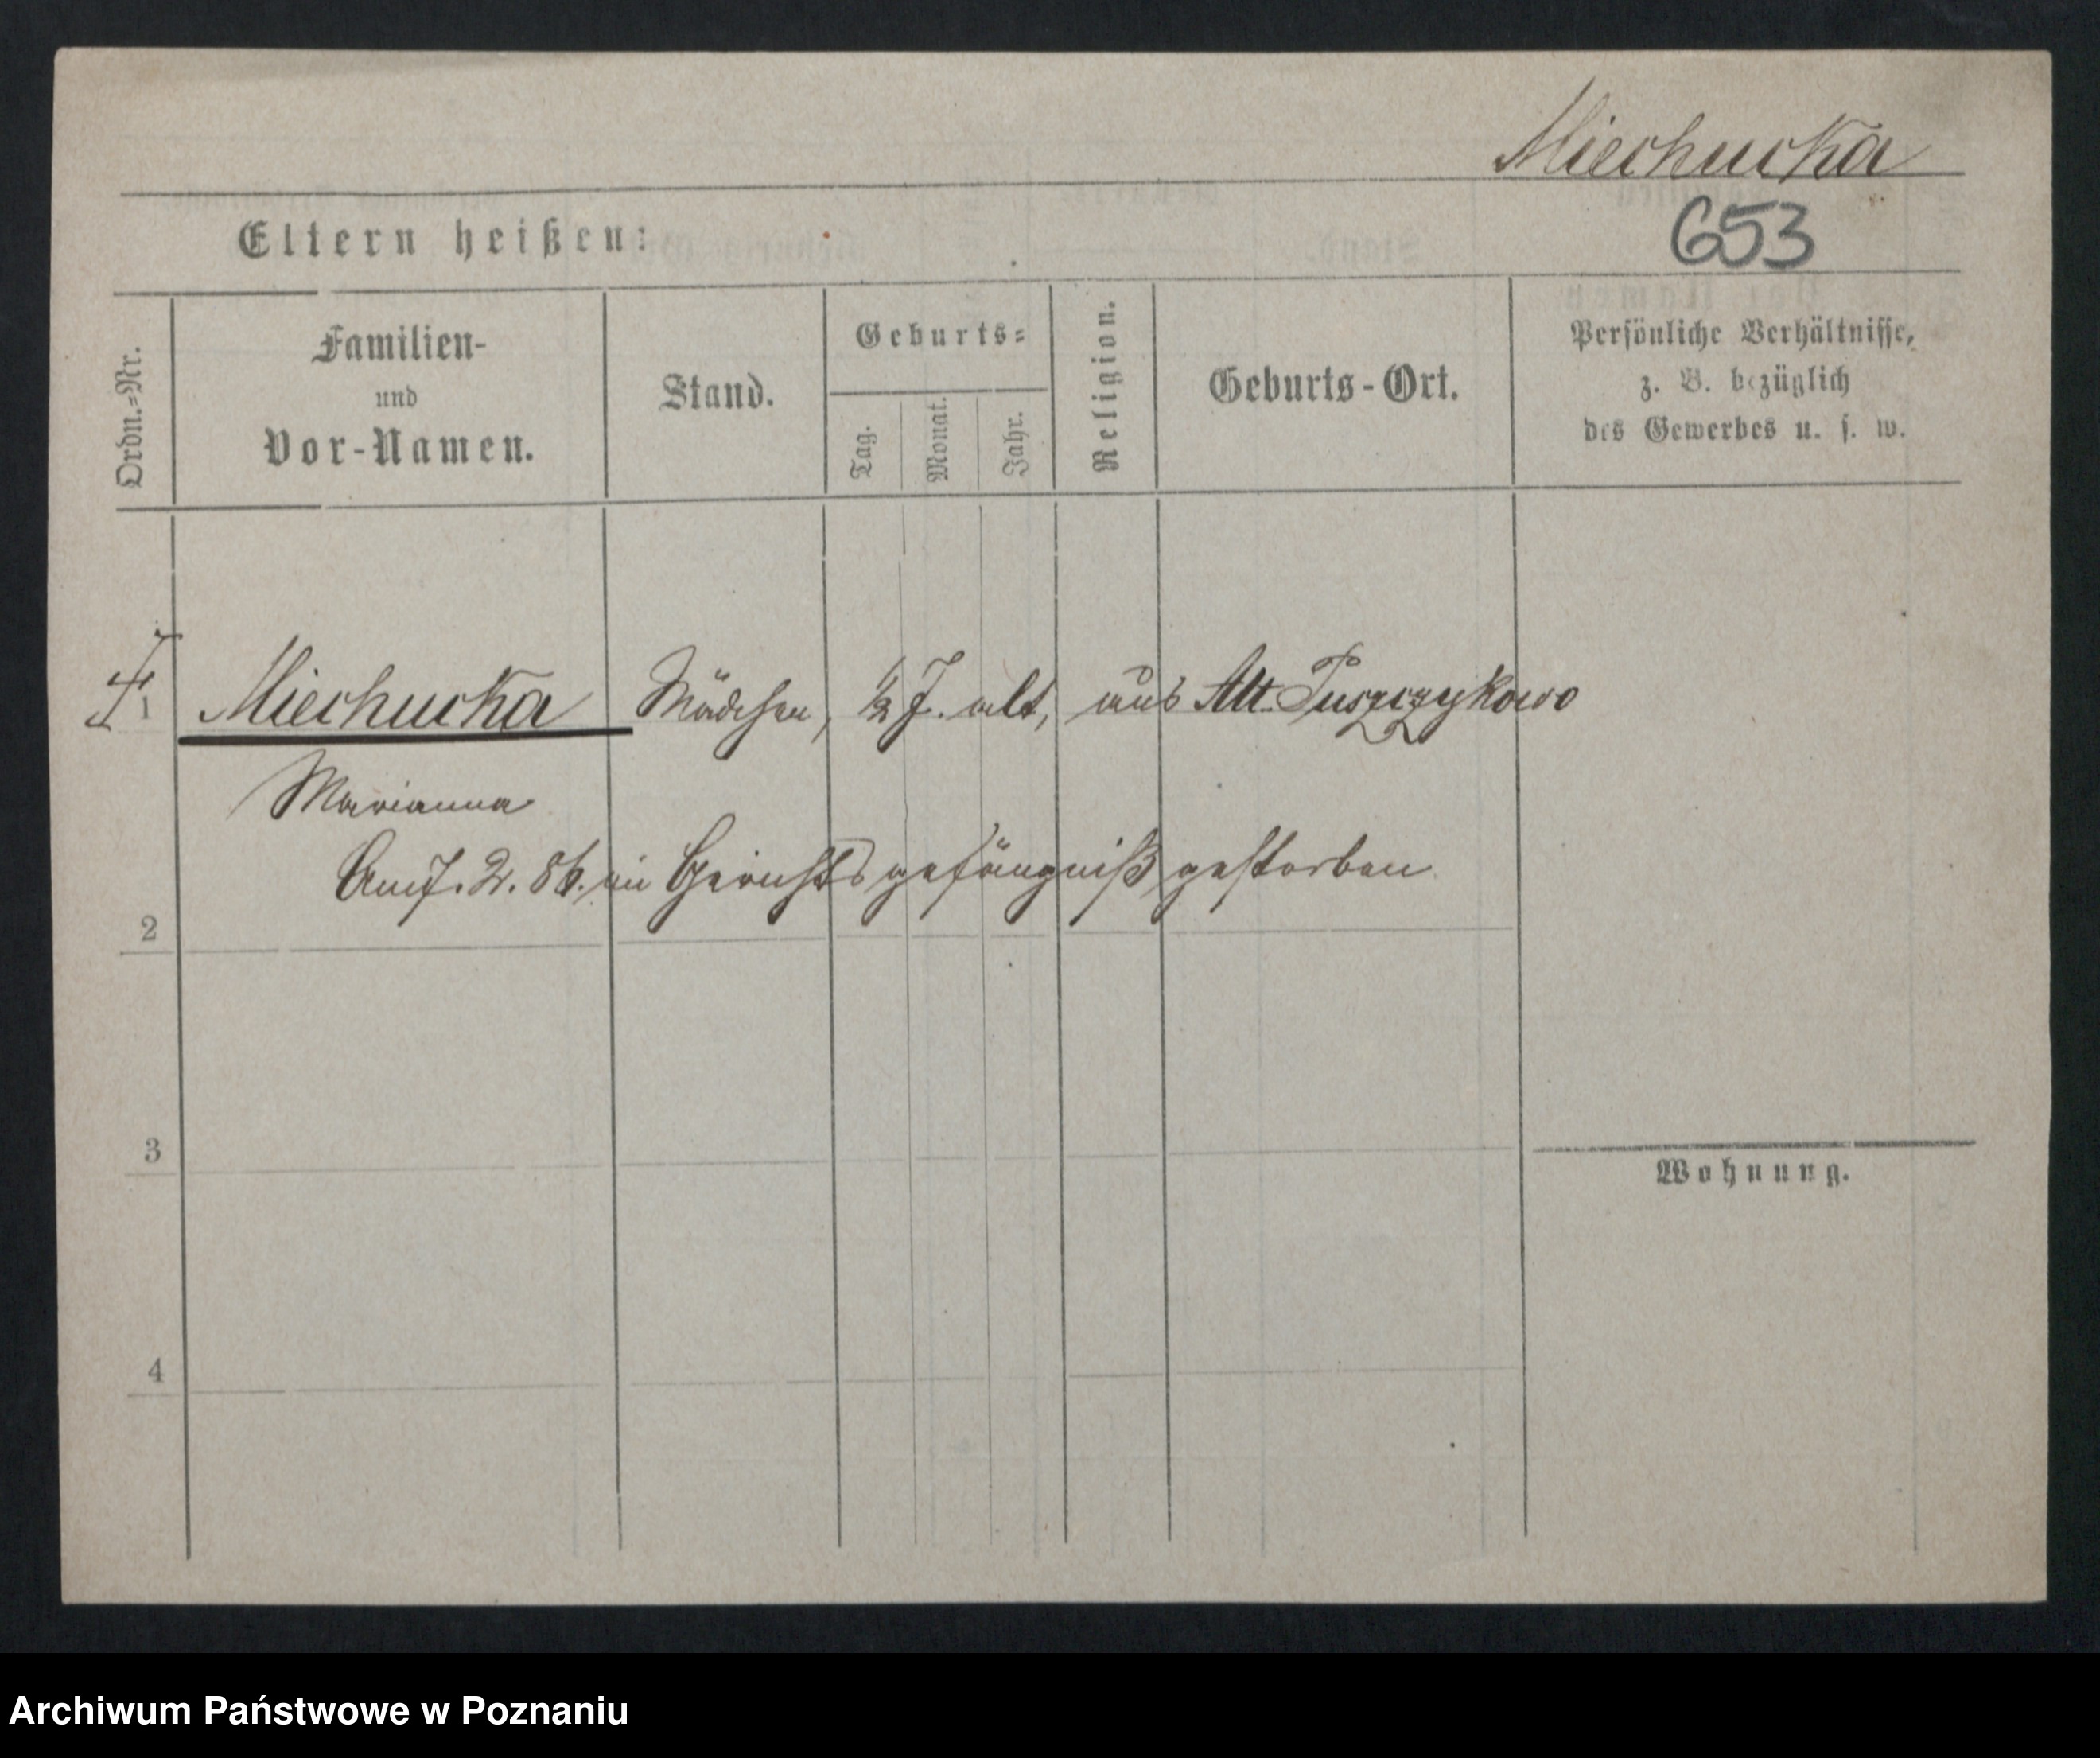 Miechucka
653
Eltern heißen:
Ordn.=Nr.
Familien-
und
Vor-Namen.
Stand.
Geburts=
Tag.
Monat.
Jahr.
Religion.
Geburts-Ort.
Persönliche Verhältnisse,
z. B. bezüglich
des Gewerbes u. s. w.
1 Miechucka Mädchen, ½ J. alt, aus Alt Puszczykowo
Marianna
Am 7. 2. 86. im Gerichtsgefängniß gestorben
2
3
Wohnung.
4
Archiwum Państwowe w Poznaniu